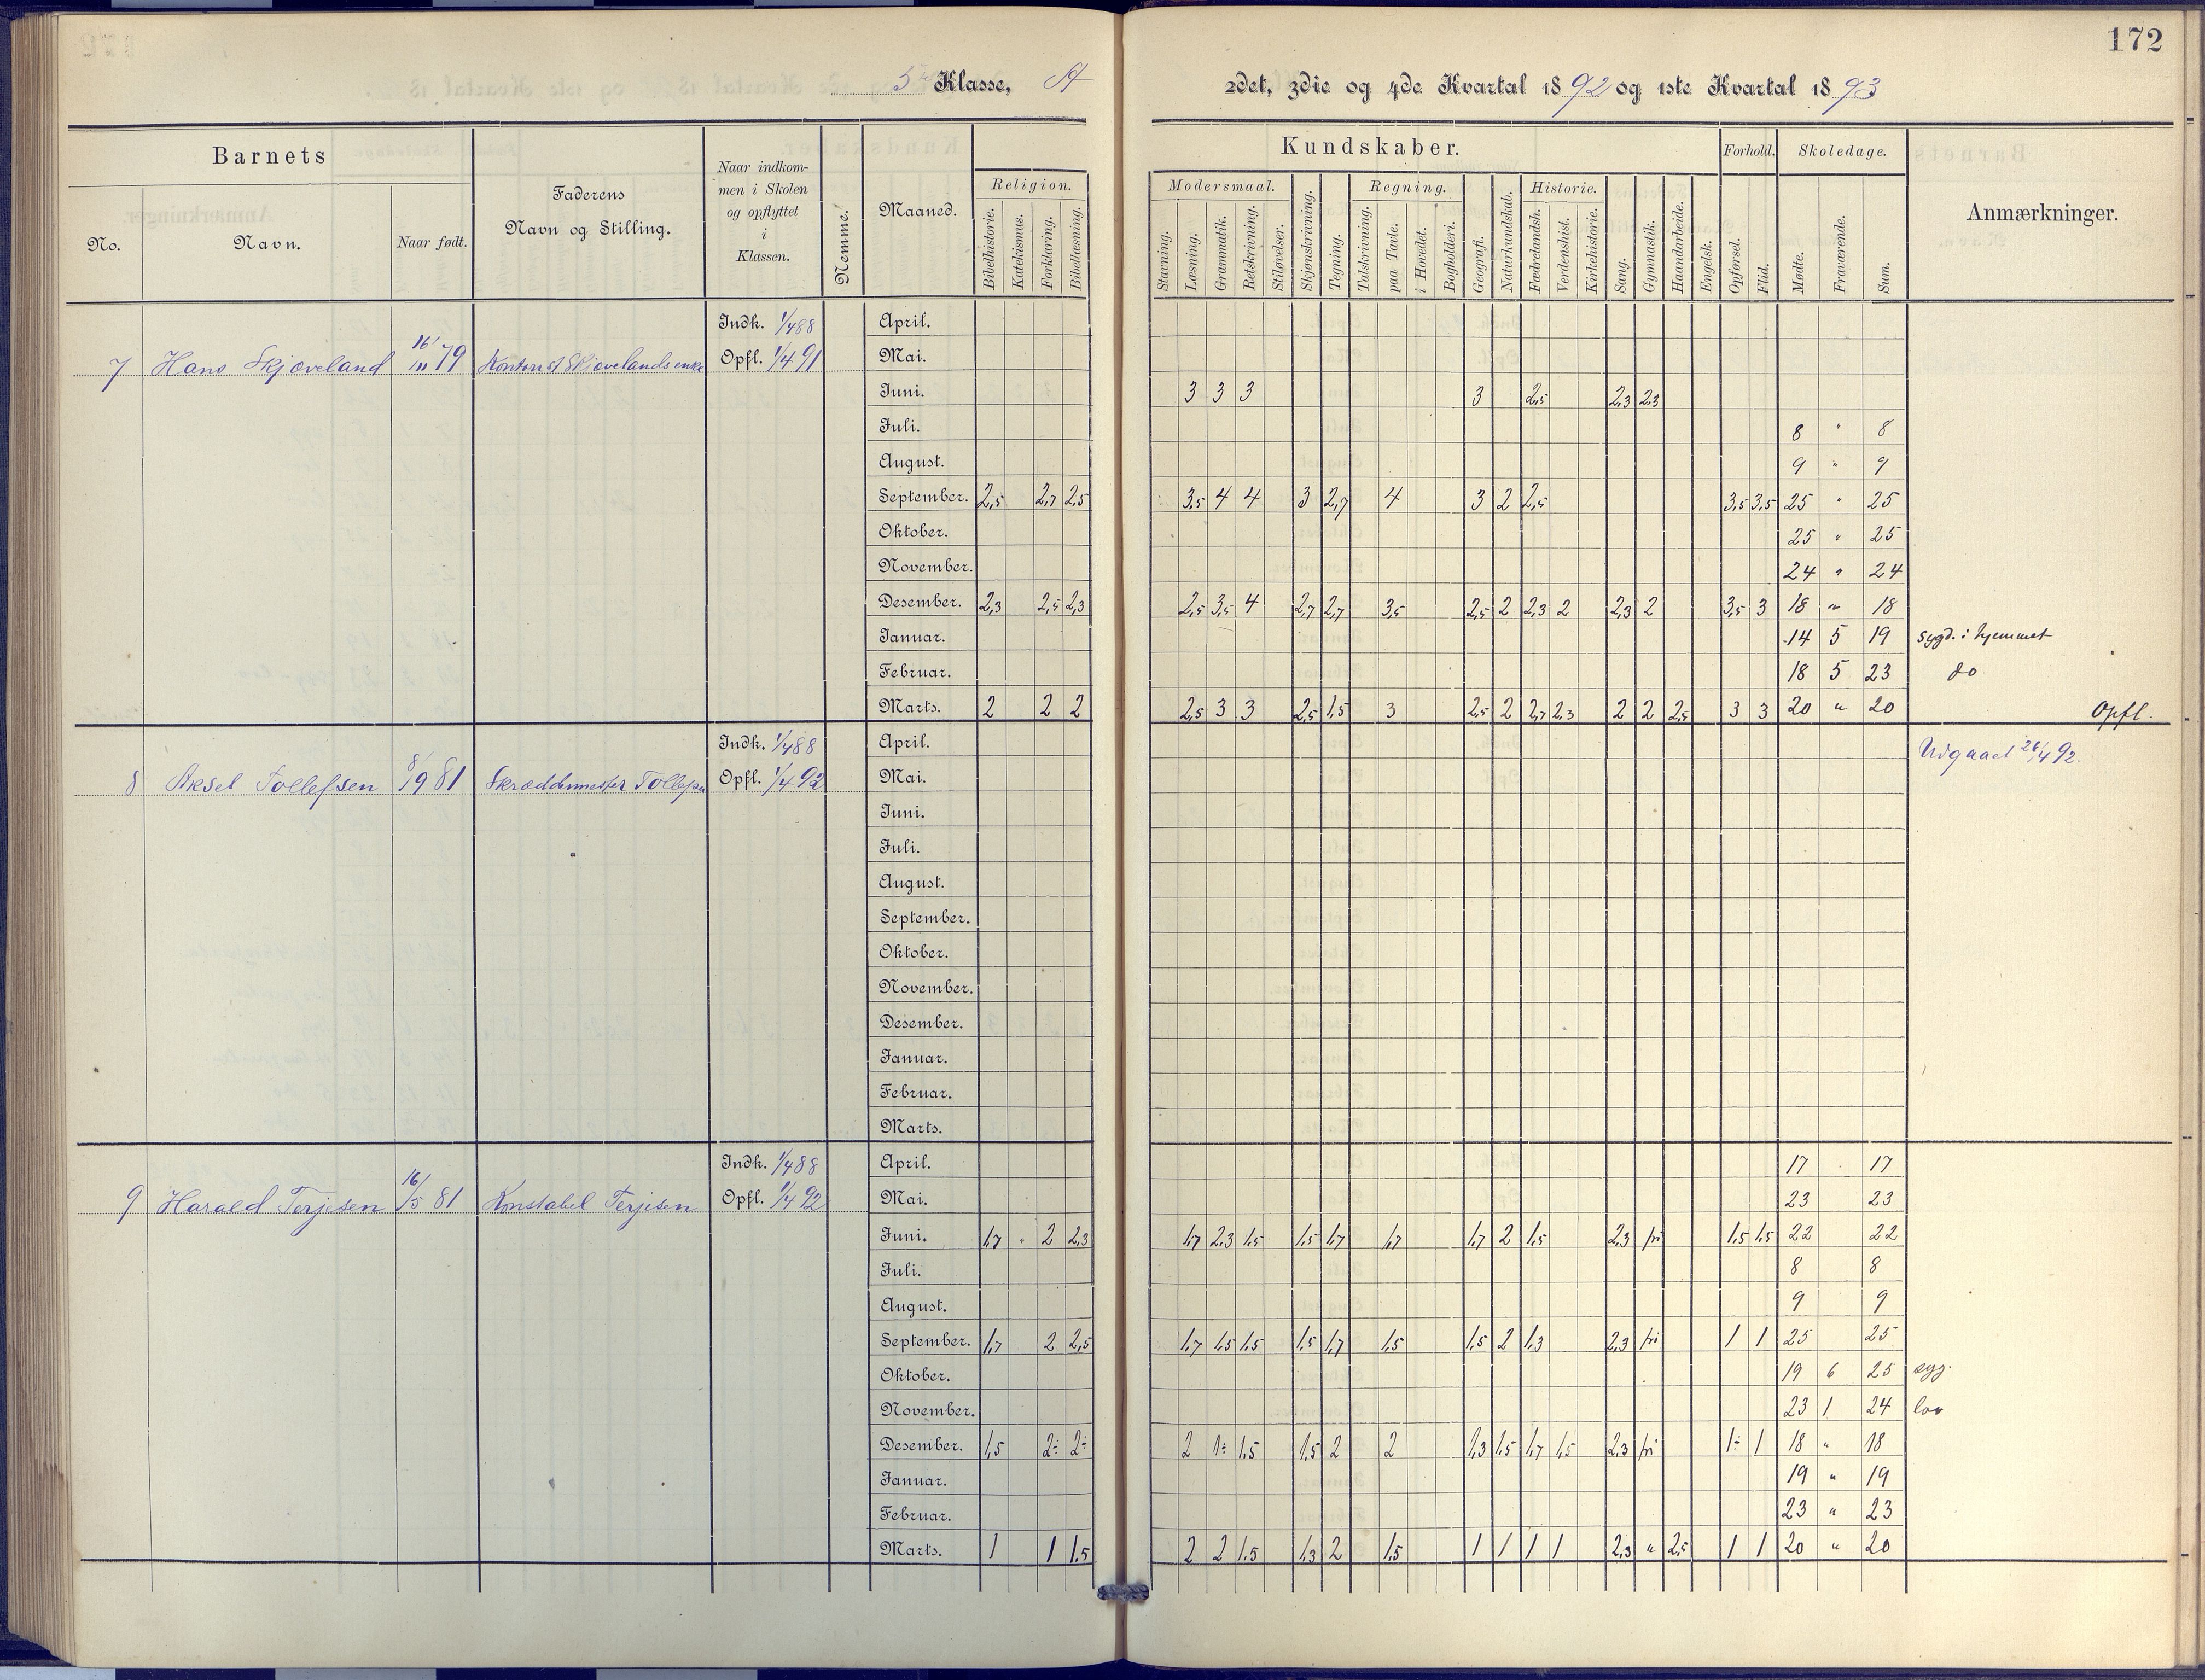 172
5te Klasse, A
2det, 3die og 4de Kvartal 1892 og 1ste Kvartal 1893
Barnets
No.
Navn.
Naar født.
Faderens
Navn og Stilling.
Naar indkom-
men i Skolen
og opflyttet
i
Klassen.
Nemme.
Maaned.
Religion.
Bibelhistorie. Katekismus. Forklaring. Bibellæsning.
Kundskaber.
Modersmaal.
Stavning. Læsning. Grammatik. Retskrivning. Stiløvelser.
Skjønskrivning. Tegning.
Regning.
Talskrivning. paa Tavle. i Hovedet. Bogholderi.
Geografi. Naturkundskab.
Historie.
Fædrelandsh. Verdenshist. Kirkehistorie.
Sang. Gymnastik. Haandarbeide. Engelsk.
Forhold.
Opførsel. Flid.
Skoledage.
Mødte. Fraværende. Sum.
Anmærkninger.
7 Hans Skjøveland 16/10 79 Kontorist Skjøvelands enke
Indk. 1/4 88
Opfl. 1/4 91
April.
Mai.
Juni. 3 3 3 3 2,5 2,3 2,3
Juli. 8 " 8
August. 9 " 9
September. 2,5 2,7 2,5 3,5 4 4 3 2,7 4 3 2 2,5 3,5 3,5 25 " 25
Oktober. 25 " 25
November. 24 " 24
Desember. 2,3 2,5 2,3 2,5 3,5 4 2,7 2,7 3,5 2,5 2 2,3 2 2,3 2 3,5 3 18 " 18
Januar. 14 5 19 sygd. i hjemmet
Februar. 18 5 23 do
Marts. 2 2 2 2,5 3 3 2,5 1,5 3 2,5 2 2,7 2,3 2 2 2,5 3 3 20 " 20 Opfl.
8 Aksel Tollefsen 8/9 81 Skræddermester Tollefsen
Indk. 1/4 88
Opfl. 1/4 92
April. Udgaaet 26/4 92.
Mai.
Juni.
Juli.
August.
September.
Oktober.
November.
Desember.
Januar.
Februar.
Marts.
9 Harald Terjesen 16/5 81 Konstabel Terjesen
Indk. 1/4 88
Opfl. 1/4 92
April. 17 17
Mai. 23 23
Juni. 1,7 " 2 2,3 1,7 2,3 1,5 1,5 1,7 1,7 1,7 2 1,5 2,3 fri 1,5 1,5 22 22
Juli. 8 8
August. 9 9
September. 1,7 2 2,5 1,7 1,5 1,5 1,5 1,7 1,5 1,5 2 1,3 2,3 fri 1 1 25 25
Oktober. 19 6 25 syg.
November. 23 1 24 lov
Desember. 1,5 2÷ 2÷ 2 1÷ 1,5 1,5 2 2 1,3 1,5 1,7 1,5 2,3 fri 1÷ 1 18 " 18
Januar. 19 " 19
Februar. 23 " 23
Marts. 1 1 1.5 2 2 1.5 1,3 2 1,5 1 1 1 1 2,3 " 2,5 1 1 20 " 20